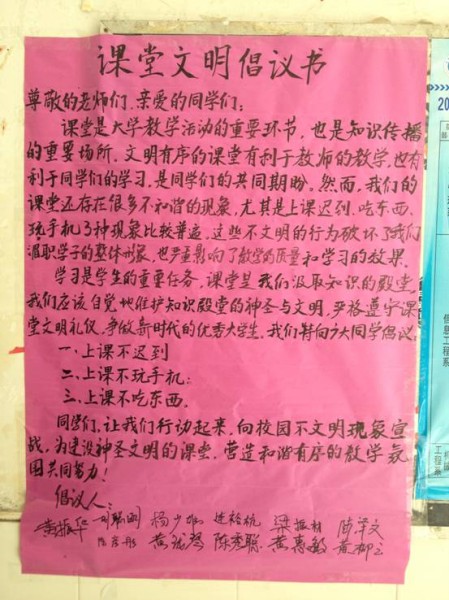 课堂文明倡议书
尊敬的老师们、亲爱的同学们：
课堂是大学教学活动的重要环节，也是知识传播
的重要场所，文明有序的课堂有利于教师的教学，也有
利于同学们的学习，是同学们的共同期盼。然而，我们的
课堂还存在很多不和谐的现象，尤其是上课迟到、吃东西、
玩手机3种现象比较普遍，这些不文明的行为破坏了我们
湄职学子的整体形象，也严重影响了教学的质量和学习的效果。
学习是学生的重要任务，课堂是我们汲取知识的殿堂，
我们应该自觉地维护知识殿堂的神圣与文明，严格遵守课
堂文明礼仪，争做新时代的优秀大学生。我们特向广大同学倡议：
一、上课不迟到
二、上课不玩手机；
三、上课不吃东西。
同学们，让我们行动起来，向校园不文明现象宣
战，为建设神圣文明的课堂，营造和谐有序的教学氛
围共同努力！
倡议人：
黄振华
20
信息工程系